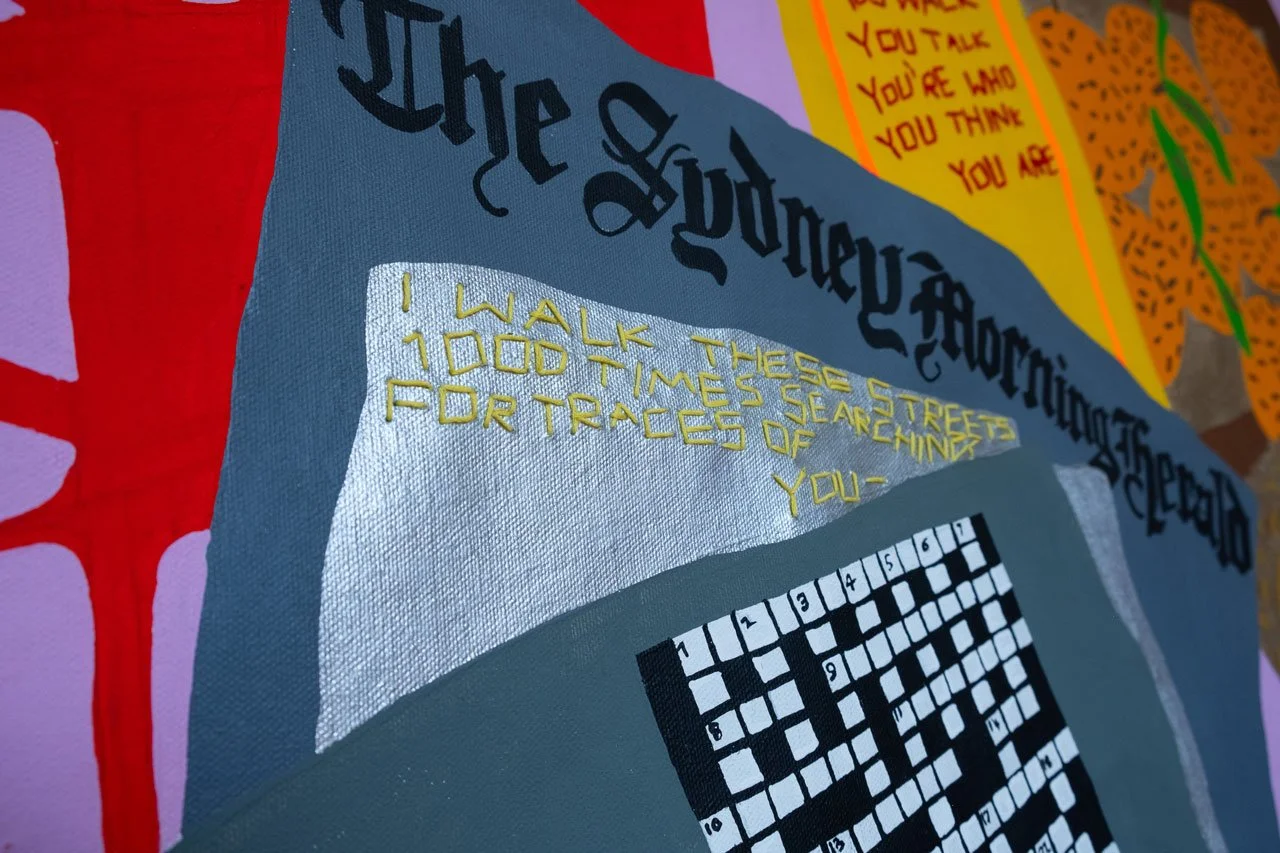 The Sydney Morning Herald
YOU TALK
YOU'RE WHO
YOU THINK
YOU ARE
I WALK THESE STREETS
1000 TIMES SEARCHING
FOR TRACES OF
YOU-
1 2 3 4 5 6 7
9
8
11
10
13
17